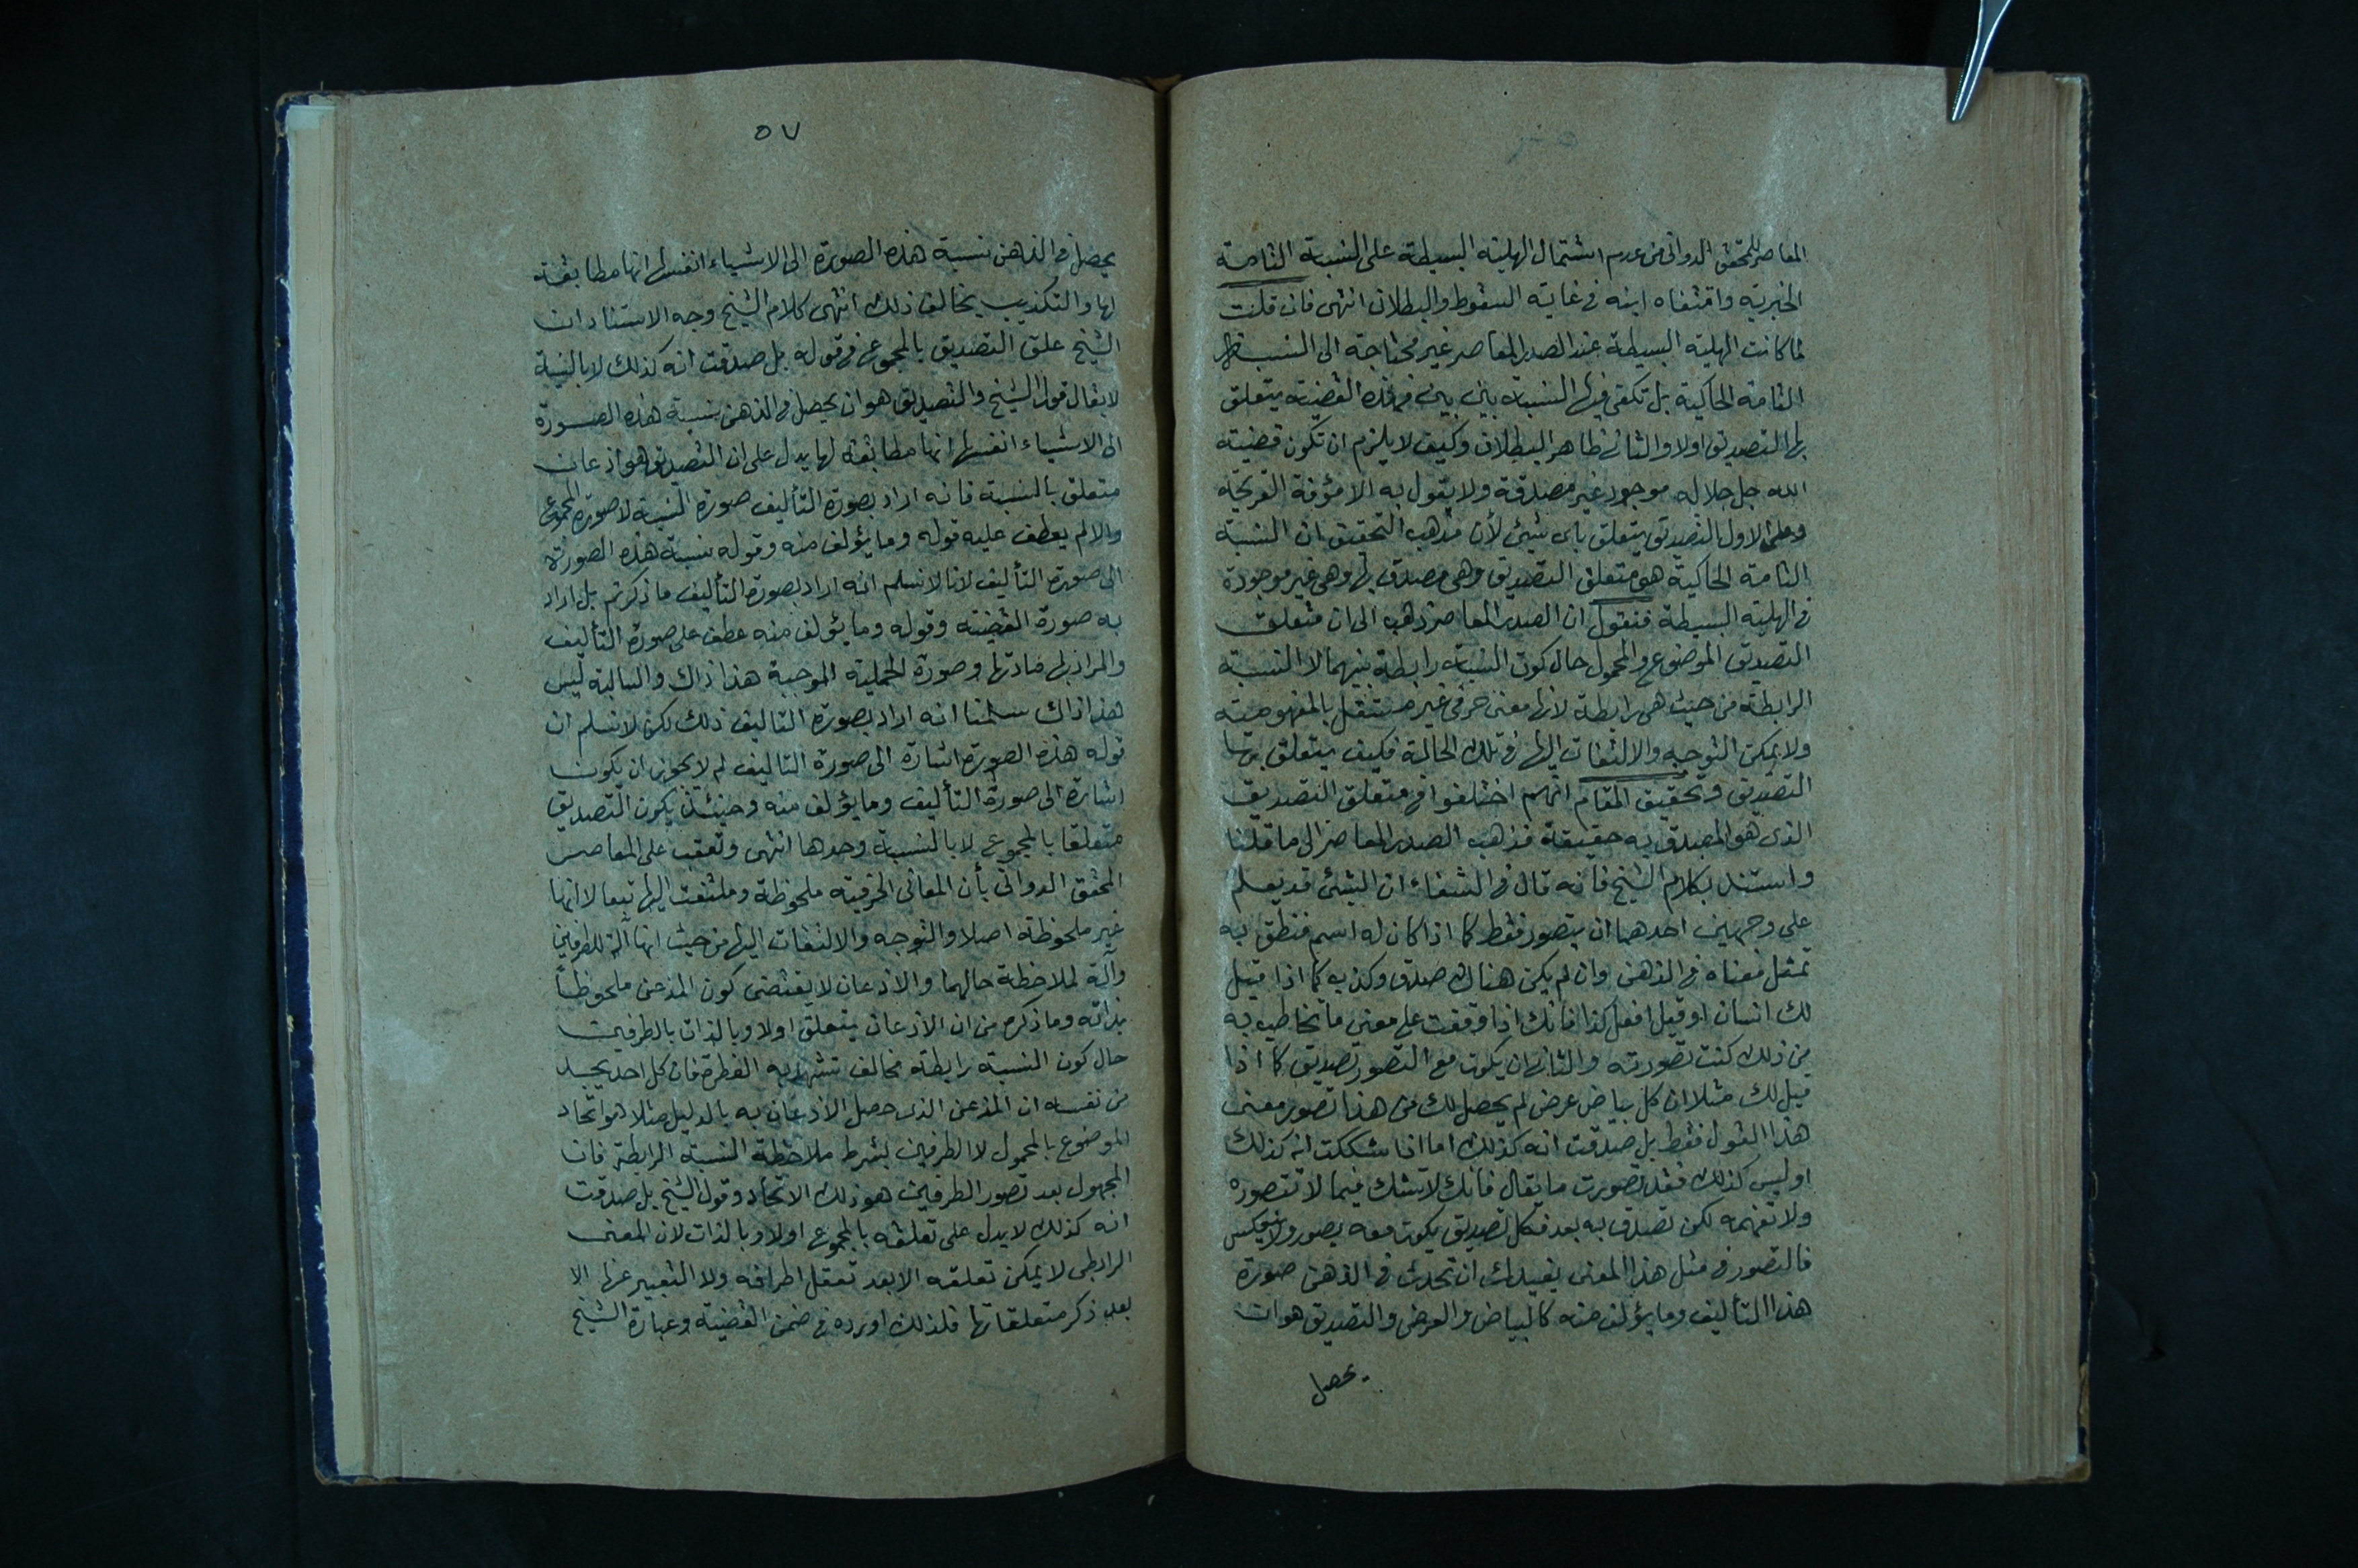 المعاصر للمحقق الدوانى من عدم اشتمال الهلية البسيطة على النسبة التامة
الخبرية واقتفاه ابنه فى غاية السقوط والبطلان انتهى فان قلت
لما كانت الهلية البسيطة عند الصدر المعاصر غير محتاجة الى النسبة
التامة الحاكية بل تكفى فيها النسبة بين بين فهذه القضية يتعلق
بها التصديق اولا والثانى ظاهر البطلان وكيف لا يلزم ان تكون قضية
الله جل جلاله موجود غير مصدقة ولا يقول به الا مؤفة القريحة
وعلى الاول التصديق يتعلق باى شيئ لأن مذهب التحقيق ان النسبة
التامة الحاكية هى متعلق التصديق وهى مصدق بها وهى غير موجودة
فى الهلية البسيطة فنقول ان الصدر المعاصر ذهب الى ان متعلق
التصديق الموضوع والمحمول حال كون النسبة رابطة بينهما لا النسبة
الرابطة من حيث هى رابطة لانها معنى حرفى غير مستقل بالمفهومية
ولا يمكن التوجه والالتفات اليها فى تلك الحالة فكيف يتعلق بها
التصديق وتحقيق المقام انهم اختلفوا فى متعلق التصديق
الذى هو المصدق به حقيقة فذهب الصدر المعاصر الى ما قلنا
واستند بكلام الشيخ فانه قال فى الشفاء ان الشيئ قد يعلم
على وجهين احدهما ان يتصور فقط كما اذا كان له اسم فنطق به
تمثل معناه فى الذهن وان لم يكن هناك صدق وكذب كما اذا قيل
لك انسان او قيل افعل كذا فانك اذا وقفت على معنى ما تخاطب به
من ذلك كنت تصورته والثانى ان يكون مع التصور تصديق كما اذا
قيل لك مثلا ان كل بياض عرض لم يحصل لك من هذا تصور معنى
هذا القول فقط بل صدقت انه كذلك اما اذا شككت انه كذلك
او ليس كذلك فقد تصورت ما يقال فانك لا تشك فيما لا تتصوره
ولا تفهمه لكن تصدق به بعد فكل تصديق يكون معه تصور ولا ينعكس
فالتصور فى مثل هذا المعنى يفيدك ان تحدث فى الذهن صورة
هذا التأليف وما يؤلف منه كالبياض والعرض والتصديق هو ان
يحصل
٥٧
يحصل فى الذهن نسبة هذه الصورة الى الاشياء انفسها انها مطابقة
لها والتكذيب يخالف ذلك انتهى كلام الشيخ وجه الاستناد ان
الشيخ علق التصديق بالمجموع فى قوله بل صدقت انه كذلك لا بالنسبة
لا يقال قول الشيخ والتصديق هو ان يحصل فى الذهن نسبة هذه الصورة
الى الاشياء انفسها انها مطابقة لها يدل على ان التصديق هو اذعان
متعلق بالنسبة فانه اراد بصورة التأليف صورة النسبة لا صورة المجموع
والا لم يعطف عليه قوله وما يؤلف منه وقوله نسبة هذه الصورة
الى صورة التأليف لانا لا نسلم انه اراد بصورة التأليف ما ذكرتم بل اراد
به صورة القضية وقوله وما يؤلف منه عطف على صورة التأليف
والمراد بها مادتها وصورة الحملية الموجبة هذا ذاك والسالبة ليس
هذا ذاك سلمنا انه اراد بصورة التاليف ذلك لكن لا نسلم ان
قوله هذه الصورة اشارة الى صورة التاليف لم لا يجوز ان يكون
اشارة الى صورة التأليف وما يؤلف منه وحينئذ يكون التصديق
متعلقا بالمجموع لا بالنسبة وحدها انتهى وتعقب على المعاصر
المحقق الدوانى بأن المعانى الحرفية ملحوظة وملتفت اليها تبعا لا انها
غير ملحوظة اصلا والتوجه والالتفات اليها من حيث انها آلة للطرفين
وآلة لملاحظة حالهما والاذعان لا يقتضى كون المذعن ملحوظاً
بذاته وما ذكره من ان الاذعان يتعلق اولا وبالذات بالطرفين
حال كون النسبة رابطة مخالف تشهد به الفطرة فان كل احد يجد
من نفسه ان المذعن الذى حصل الاذعان به بالدليل مثلا هو اتحاد
الموضوع بالمحمول لا الطرفين بشرط ملاحظة النسبة الرابطة فان
المجهول بعد تصور الطرفين هو ذلك الاتحاد وقول الشيخ بل صدقت
انه كذلك لا يدل على تعلقه بالمجموع اولا وبالذات لان المعنى
الرابطى لا يمكن تعلقه الا بعد تعقل اطرافه ولا التعبير عنها الا
بعد ذكر متعلقاتها فلذلك اورده فى ضمن القضية وعبارة الشيخ